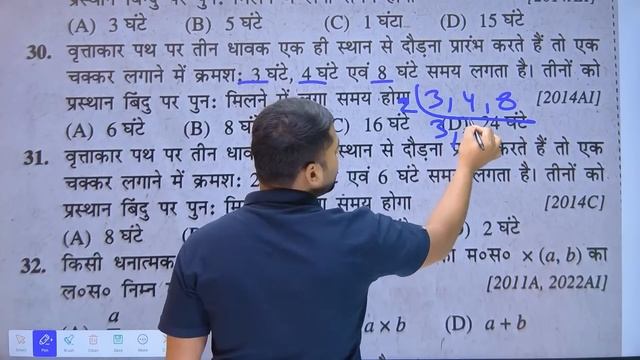 प्रस्थान बिंदु पर पुनः मिलने में लगा समय होगा
(A) 3 घंटे (B) 5 घंटे (C) 1 घंटा (D) 15 घंटे
30. वृत्ताकार पथ पर तीन धावक एक ही स्थान से दौड़ना प्रारंभ करते हैं तो एक
चक्कर लगाने में क्रमशः 3 घंटे, 4 घंटे एवं 8 घंटे समय लगता है। तीनों को
प्रस्थान बिंदु पर पुनः मिलने लगा समय होगा [2014AI]
2 3, 4, 8
(A) 6 घंटे (B) 8 घं C) 16 घंटे (D) 24 घंटे
3,
31. वृत्ताकार पथ पर तीन धाव स्थान से दौड़ना करते हैं तो एक
चक्कर लगाने में क्रमशः 2 एवं 6 घंटे समय लगता है। तीनों को
प्रस्थान बिंदु पर पुनः मि समय होगा [2014C]
(A) 8 घंटे ) 2 घंटे
32. किसी धनात्मक म०स० × (a, b) का
ल०स० निम्न [2011A, 2022AI]
a a × b (D) a + b
Pen Brush Clear Save More